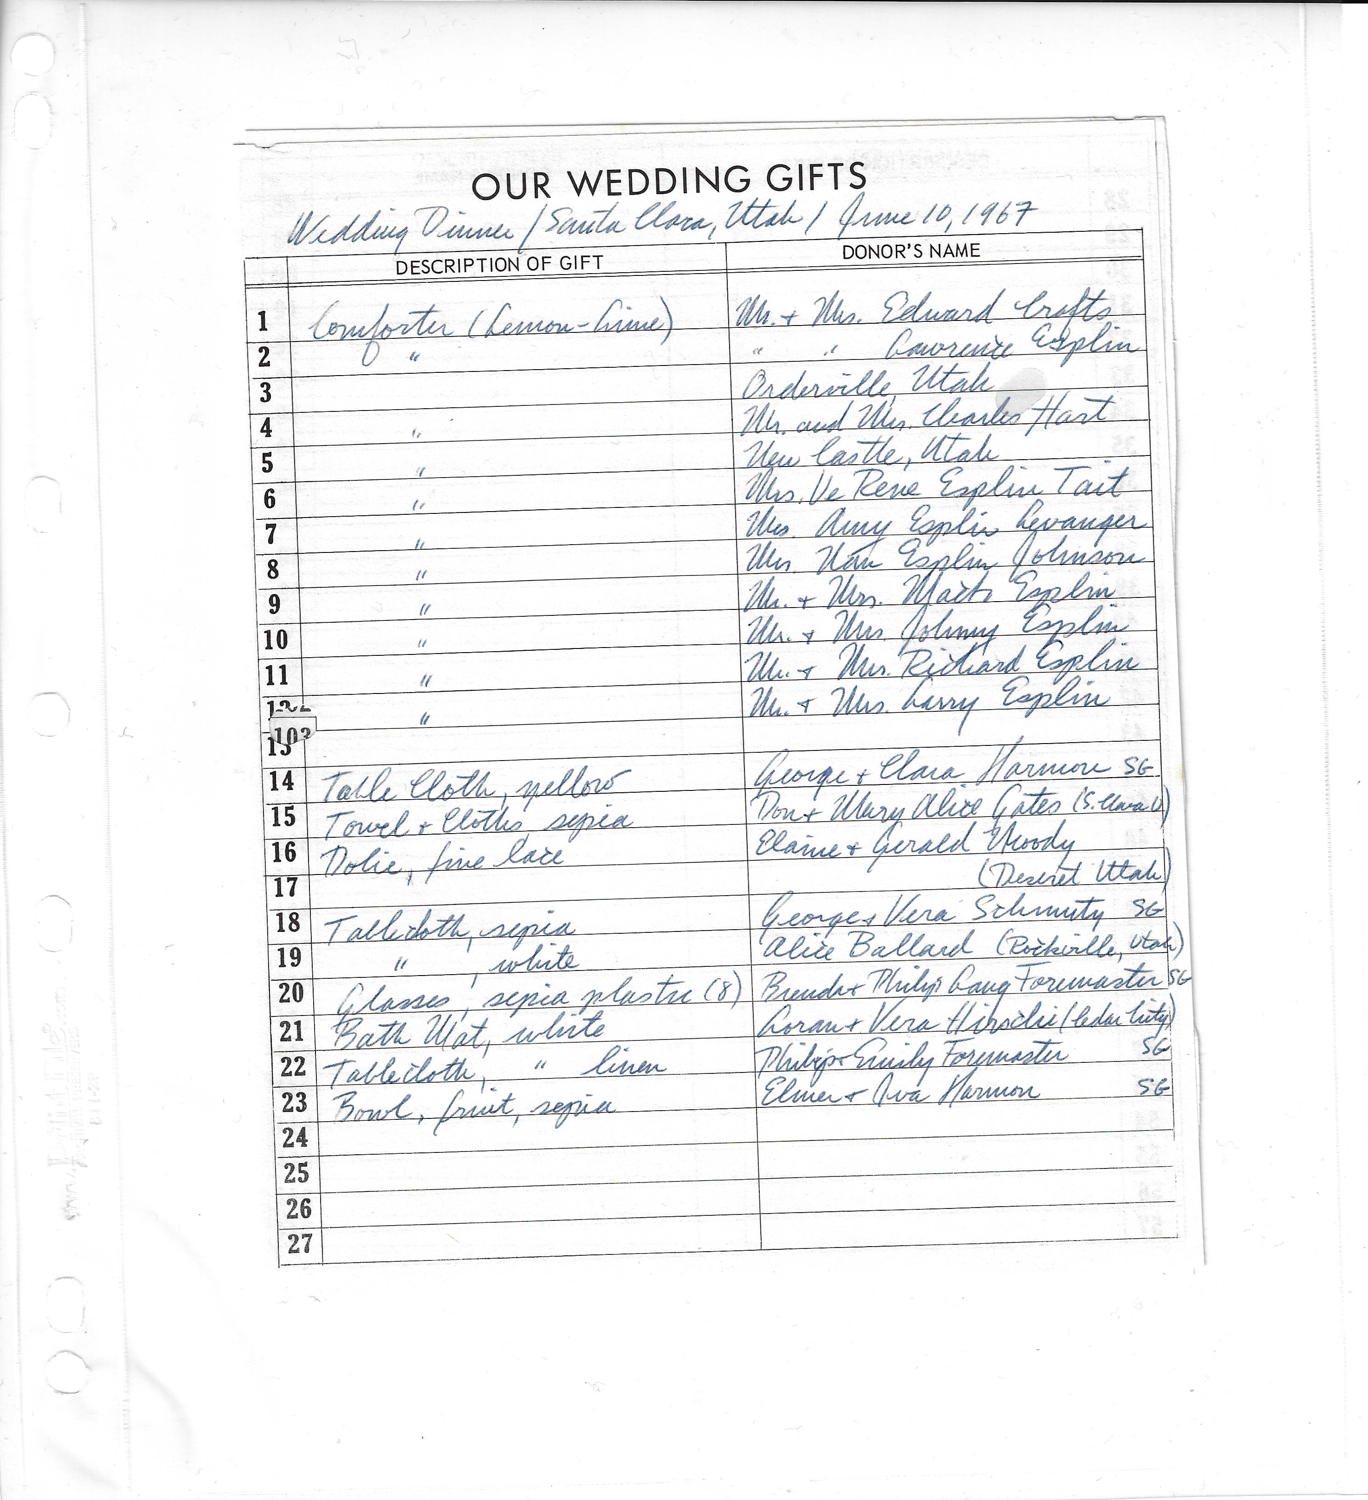 OUR WEDDING GIFTS
Wedding Dinner / Santa Clara, Utah / June 10, 1967
DESCRIPTION OF GIFT DONOR'S NAME
1 Comforter (Lemon-Lime) Mr. + Mrs. Edward Crofts
2 " " " Lawrence Esplin
3 Orderville, Utah
4 " Mr. and Mrs. Charles Hart
5 " New Castle, Utah
6 " Mrs. Ve Rene Esplin Tait
7 " Mrs. Amy Esplin Levanger
8 " Mrs. Nan Esplin Johnson
9 " Mr. + Mrs. Esplin
10 " Mr. + Mrs. Johnny Esplin
11 " Mr. + Mrs. Richard Esplin
12 " Mr. + Mrs. Larry Esplin
13
14 Table Cloth, yellow George + Clara Harmon SG
15 Towel + Cloths, sepia Don + Mary Alice Gates (S. Clara U)
16 Dolie, fine lace Elaine + Gerald Moody
17 (Deseret Utah)
18 Tablecloth, sepia George + Vera Schmutz SG
19 " , white Alice Ballard (Rockville, Utah)
20 Glasses, sepia plastic (8) Brenda + Philip Lang Foremaster SG
21 Bath Mat, white Loran + Vera Hirschi (Cedar City)
22 Tablecloth, " linen Philip + Emily Foremaster SG
23 Bowl, fruit, sepia Elmer + Iva Harmon SG
24
25
26
27